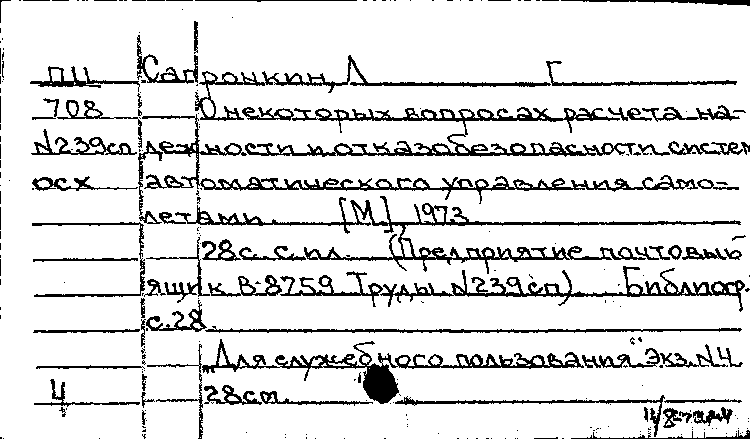 ПЦ Сапрочкин, Л Г
708 О некоторых вопросах расчета на-
N239сп дежности и отказобезопасности систем
осх автоматического управления само-
летами. [М], 1973
28с. с ил. (Предприятие почтовый
ящик В-8759 Труды N239сп). Библиогр.
с.28.
„Для служебного пользования" Экз. N4
4 28см.